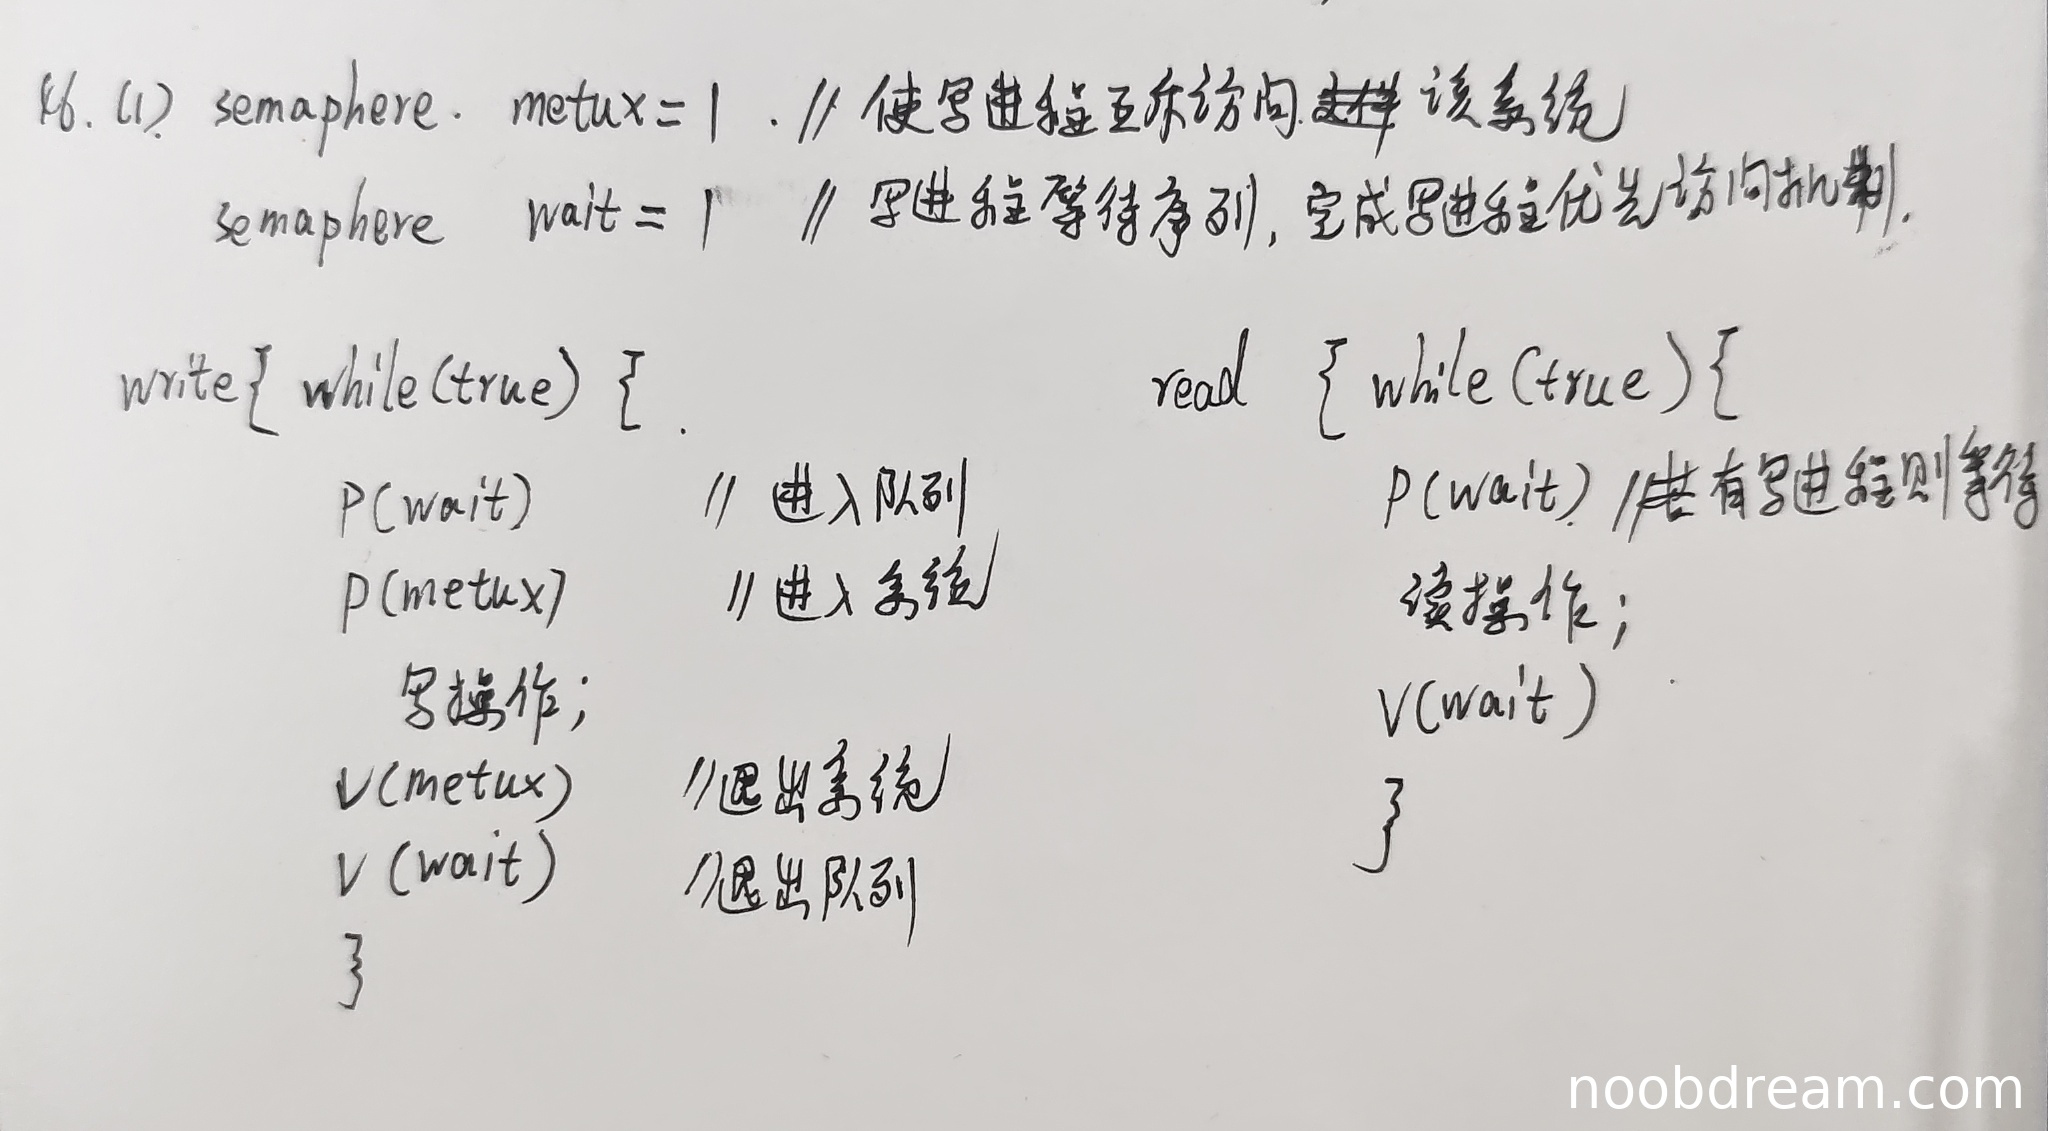 46. (1) semaphere. metux = 1 . // 使写进程互斥访问 该系统
semaphere wait = 1 // 写进程等待序列, 完成写进程优先访问机制.
write{ while(true) {
P(wait) // 进入队列
P(metux) // 进入系统
写操作;
V(metux) //退出系统
V(wait) //退出队列
}
read { while(true){
P(wait) // 有写进程则等待
读操作;
V(wait)
}
noobdream.com